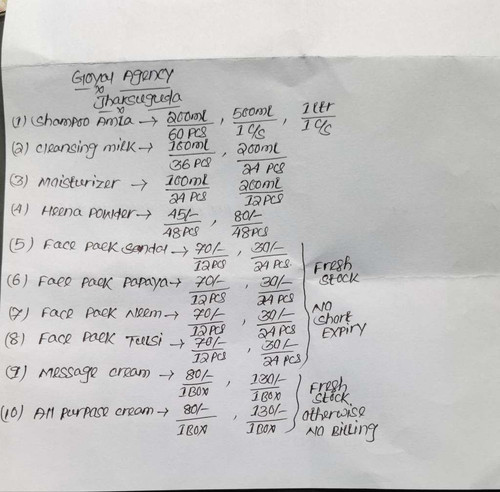 Goyal Agency
Jharsuguda
(1) Shampoo Amla → 200ml/60 PCS, 500ml/1 C/S, 1 ltr/1 C/S
(2) Cleansing milk → 100ml/36 PCS, 200ml/24 PCS
(3) Moisturizer → 100ml/24 PCS, 200ml/12 PCS
(4) Heena Powder → 45/-/48 PCS, 80/-/48 PCS
(5) Face Pack Sandal → 70/-/12 PCS, 30/-/24 PCS.
(6) Face Pack Papaya → 70/-/12 PCS, 30/-/24 PCS
(7) Face Pack Neem → 70/-/12 PCS, 30/-/24 PCS
(8) Face Pack Tulsi → 70/-/12 PCS, 30/-/24 PCS
Fresh
Stock
NO
Short
Expiry
(9) Message cream → 80/-/1 BOX, 130/-/1 BOX
(10) All purpose cream → 80/-/1 BOX, 130/-/1 BOX
Fresh
Stock
otherwise
NO Billing